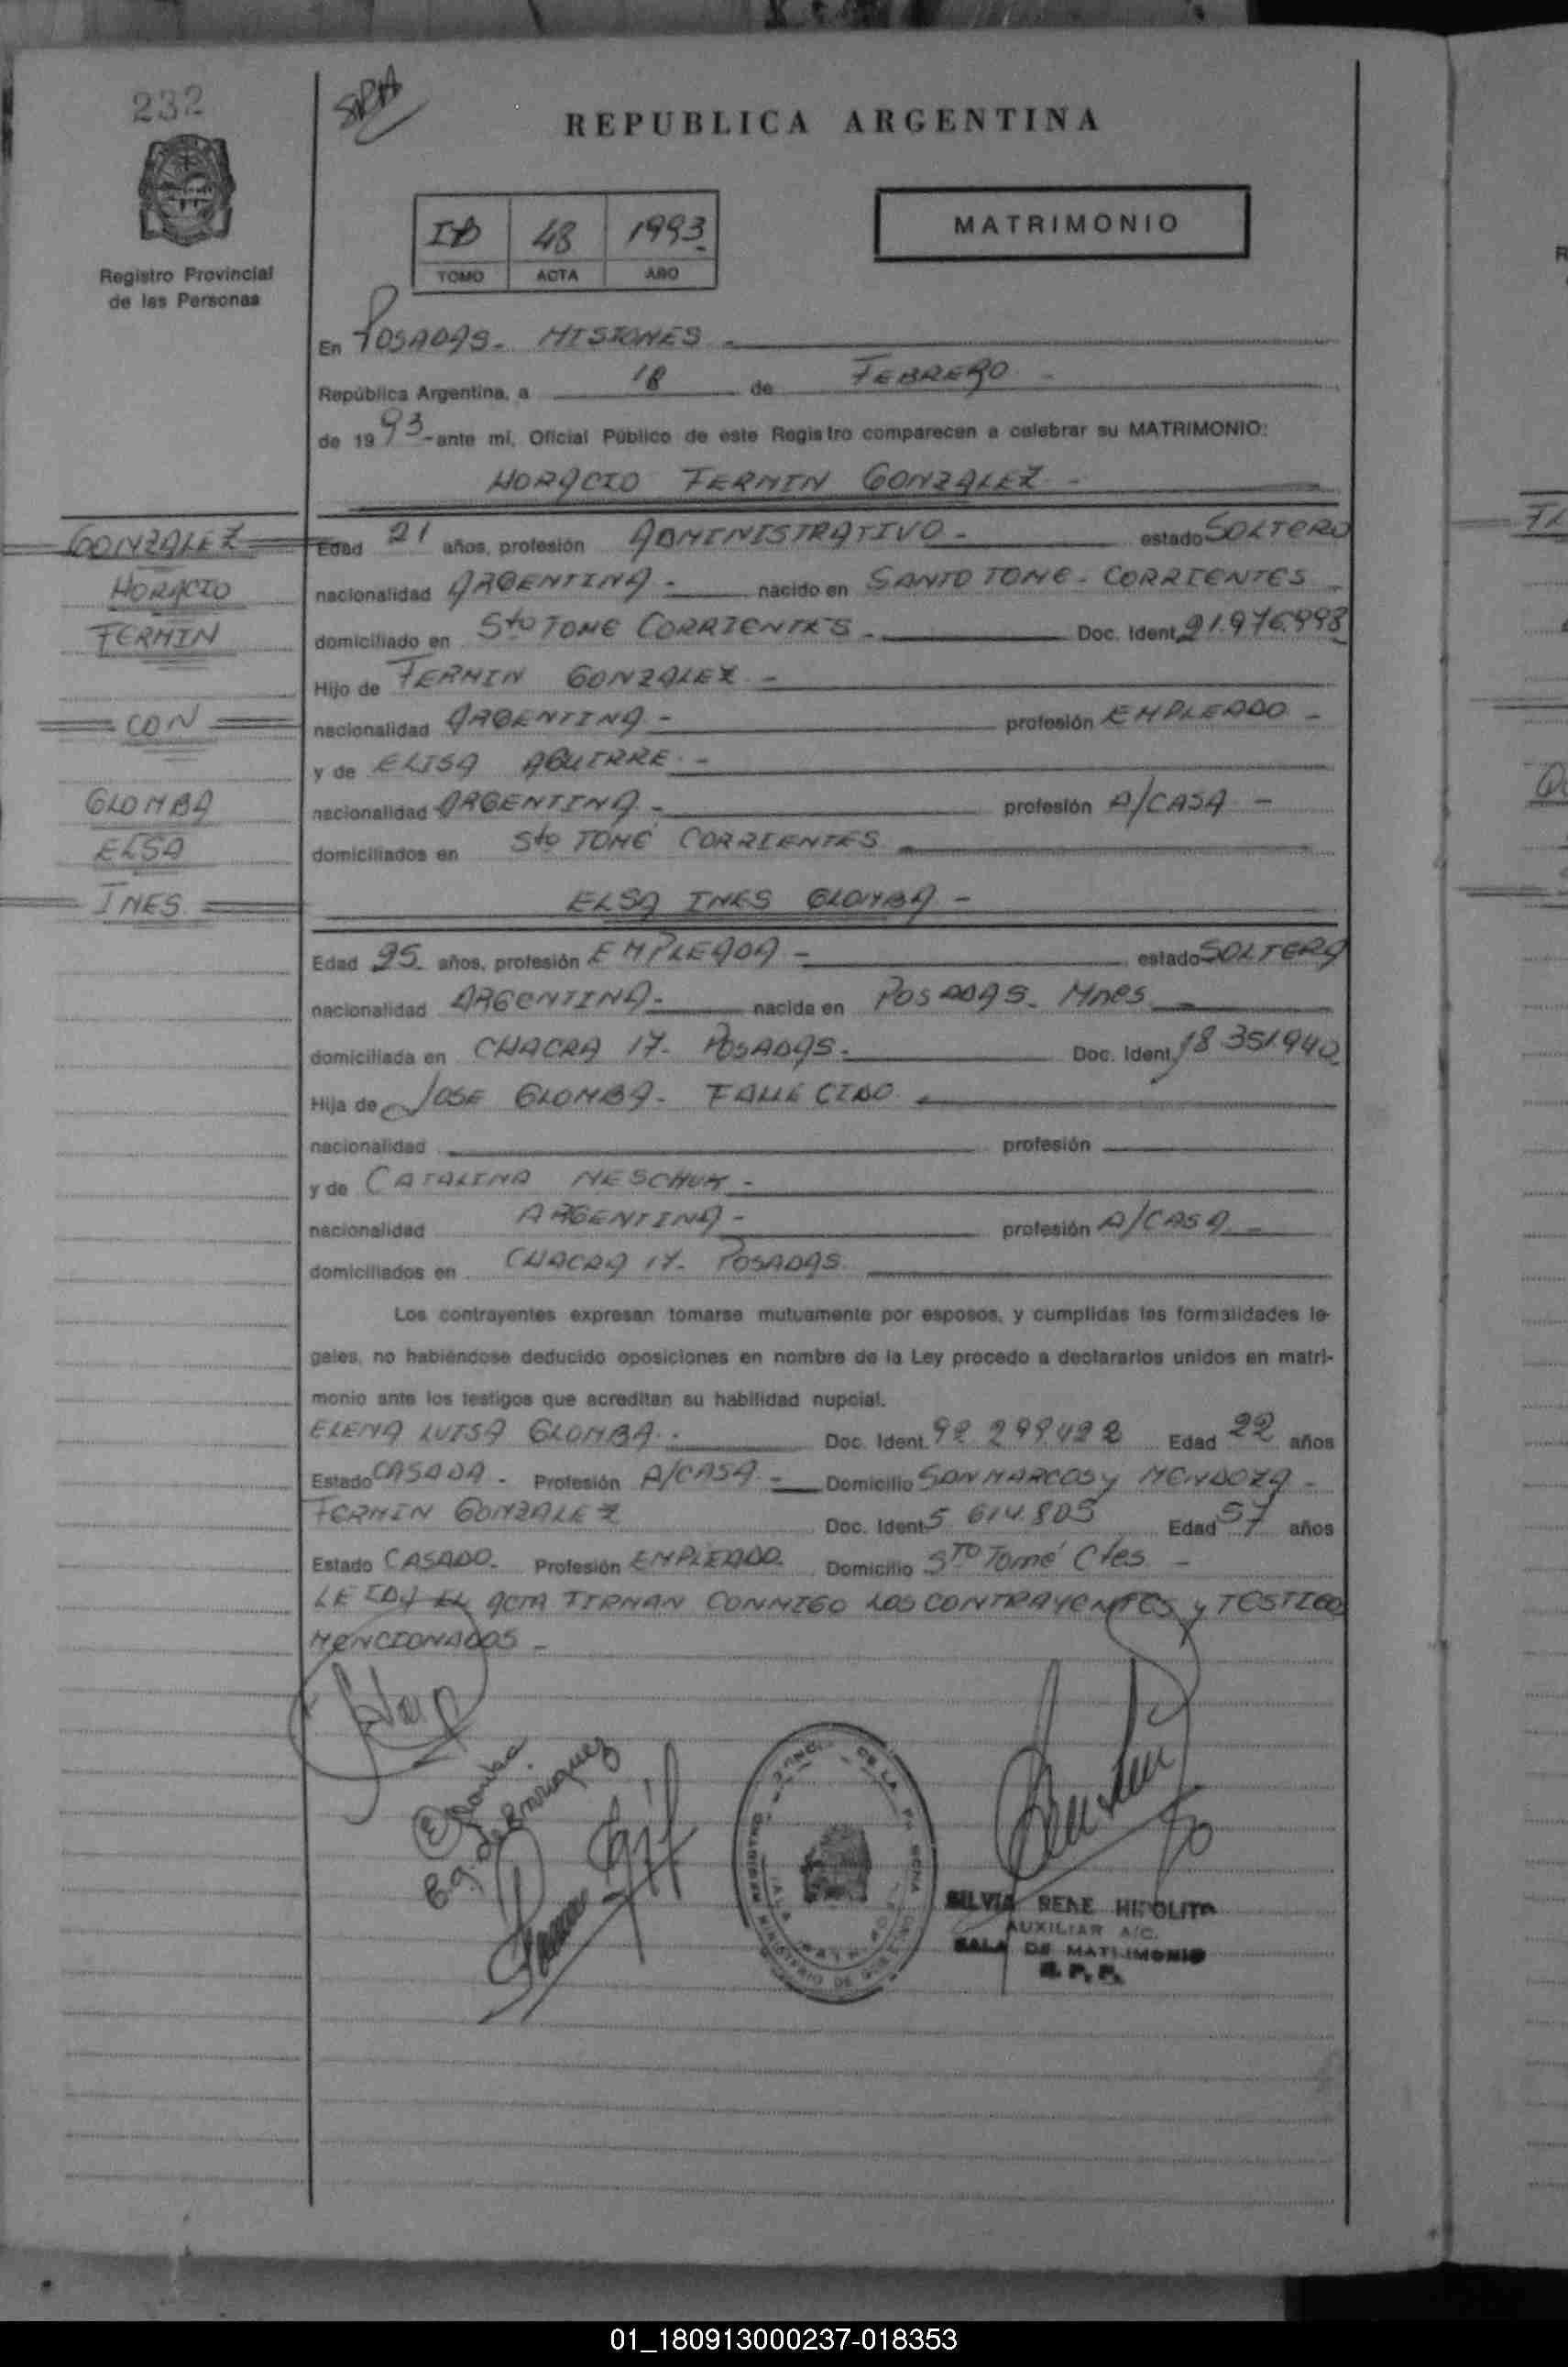 232
SRA
REPUBLICA ARGENTINA
48 1993
TOMO ACTA AÑO
MATRIMONIO
Registro Provincial
de las Personas
En POSADAS - MISIONES -
República Argentina, a 18 de FEBRERO -
de 1993 - ante mí, Oficial Público de este Registro comparecen a celebrar su MATRIMONIO:
HORACIO FERMIN GONZALEZ -
GONZALEZ
HORACIO
FERMIN
CON
GLOMBA
ELSA
INES
Edad 21 años, profesión ADMINISTRATIVO - estado SOLTERO
nacionalidad ARGENTINA - nacido en SANTO TOME - CORRIENTES
domiciliado en Sto TOME CORRIENTES - Doc. Ident. 21.976.998
Hijo de FERMIN GONZALEZ -
nacionalidad ARGENTINA - profesión EMPLEADO -
y de ELISA AGUIRRE -
nacionalidad ARGENTINA - profesión A/CASA -
domiciliados en Sto TOMÉ CORRIENTES
ELSA INES GLOMBA -
Edad 25 años, profesión EMPLEADA - estado SOLTERA
nacionalidad ARGENTINA - nacida en POSADAS - Mnes
domiciliada en CHACRA 17 - POSADAS - Doc. Ident. 18.351.940
Hija de JOSE GLOMBA - FALLECIDO
nacionalidad profesión
y de CATALINA MESCHUK -
nacionalidad ARGENTINA - profesión A/CASA -
domiciliados en CHACRA 17 - POSADAS
Los contrayentes expresan tomarse mutuamente por esposos, y cumplidas las formalidades le-
gales, no habiéndose deducido oposiciones en nombre de la Ley procedo a declararlos unidos en matri-
monio ante los testigos que acreditan su habilidad nupcial.
ELENA LUISA GLOMBA - Doc. Ident. 92.299.422 Edad 22 años
Estado CASADA - Profesión A/CASA - Domicilio SAN MARCOS y MENDOZA -
FERMIN GONZALEZ Doc. Ident. 5.614.805 Edad 57 años
Estado CASADO - Profesión EMPLEADO. Domicilio STO Tomé Ctes -
LEIDA EL ACTA FIRMAN CONMIGO LOS CONTRAYENTES y TESTIGOS
MENCIONADOS -
E. Glomba
E.g. de Enriquez
SILVIA RENE HIPOLITO
AUXILIAR A/C.
SALA DE MATRIMONIO
R. P. P.
01_180913000237-018353